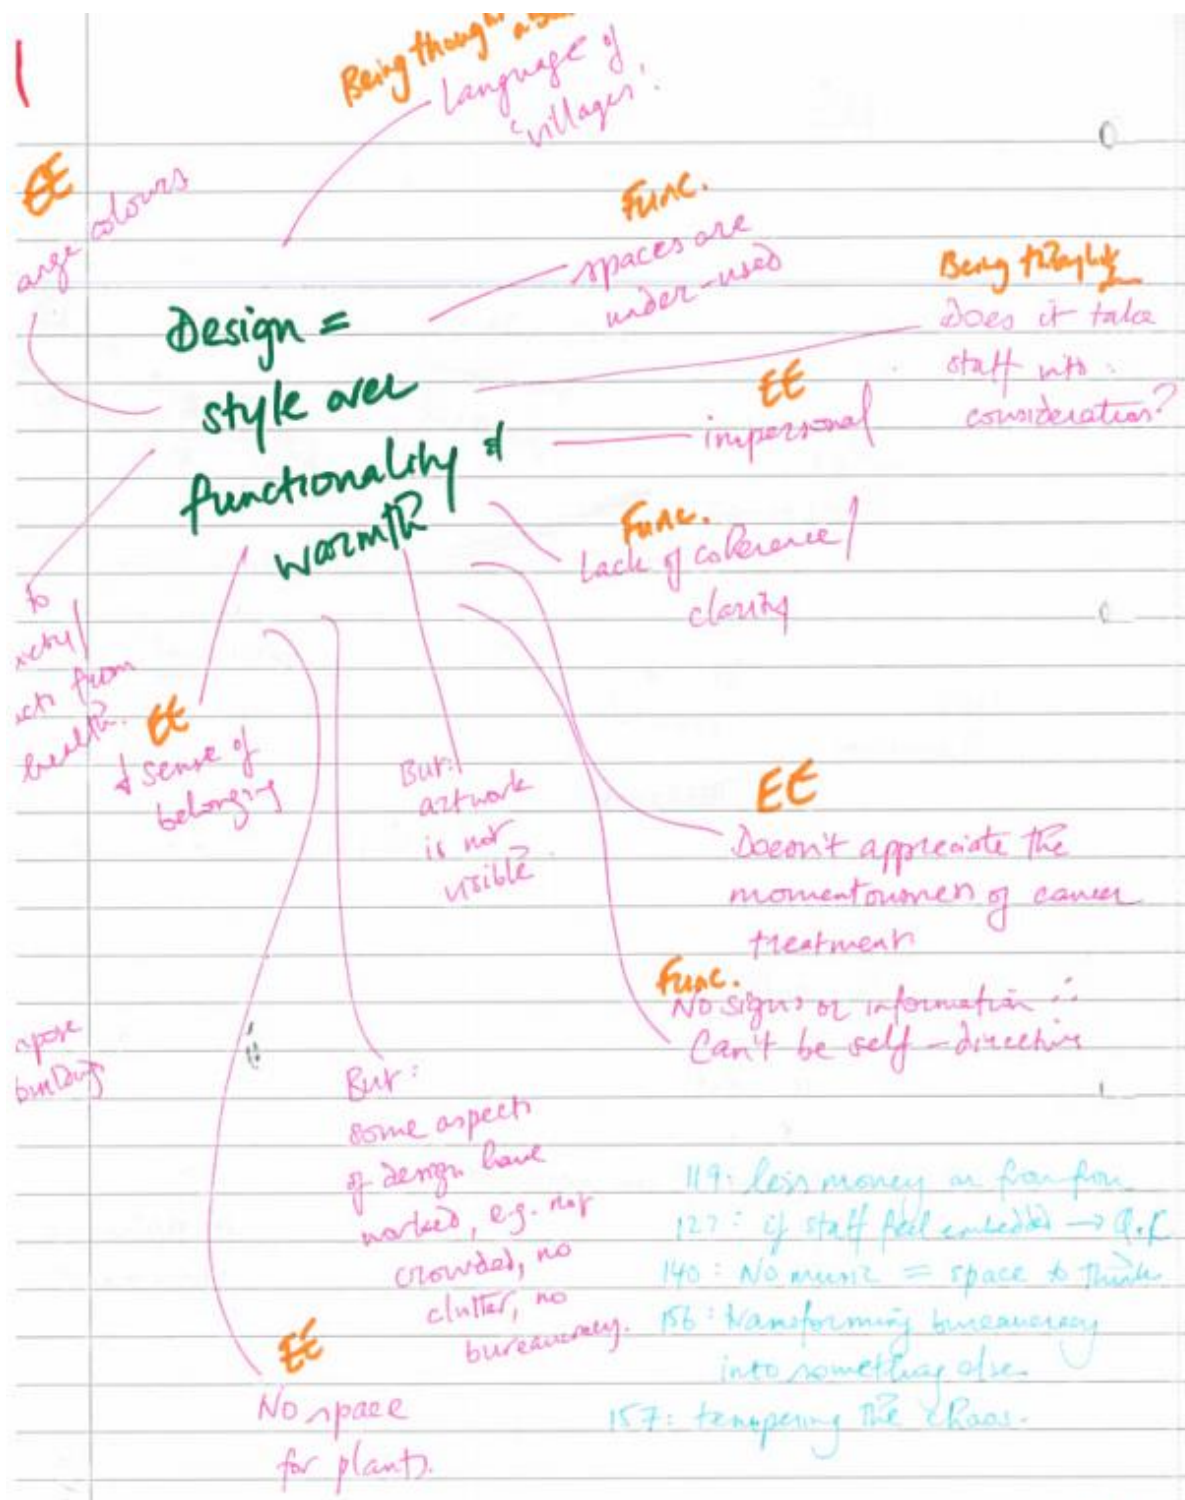 Being though
Language of
'villages'.
EE
ange colours
Func.
spaces are
under-used
Being thought
Does it take
staff into
consideration?
Design =
style over
functionality &
warmth
EE
impersonal
Func.
Lack of coherence/
clarity
to
from
health.
EE
↓ sense of
belonging
But:
artwork
is not
visible
EE
Doesn't appreciate the
momentousness of cancer
treatment
Func.
No signs or information ∴
Can't be self-directive
building
But:
some aspects
of design have
worked, e.g. not
crowded, no
clutter, no
bureaucracy.
EE
No space
for plants.
119: less money on frou frou
127: if staff feel embedded →
140: No music = space to think
156: transforming bureaucracy
into something else.
157: tempering the chaos.